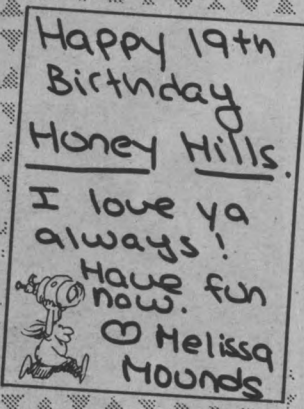 Happy 19th
Birthday
Honey Hills.
I love ya
always!
Have fun
now.
♡ Melissa
Mounds